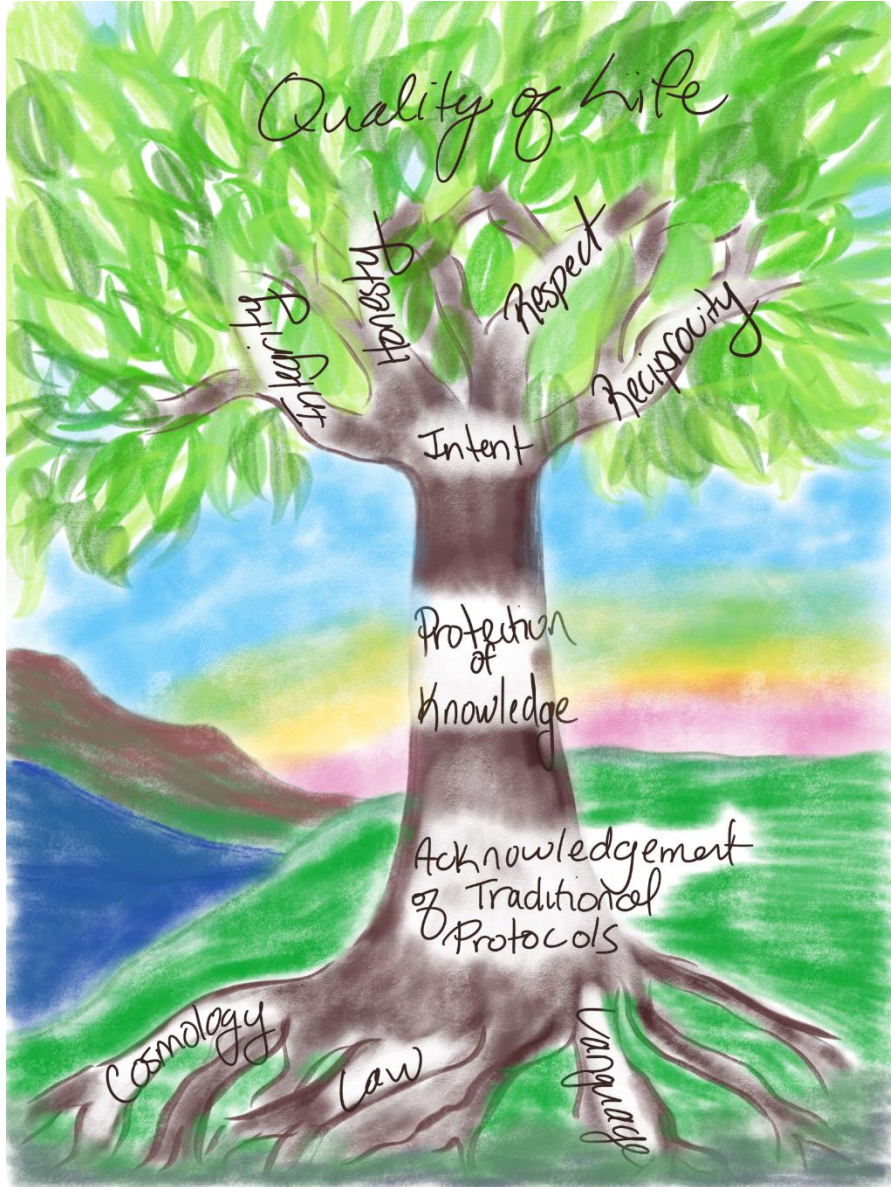 Quality of Life
Integrity
Honesty
Respect
Reciprocity
Intent
Protection
of
Knowledge
Acknowledgement
of Traditional
Protocols
Cosmology
Law
Language